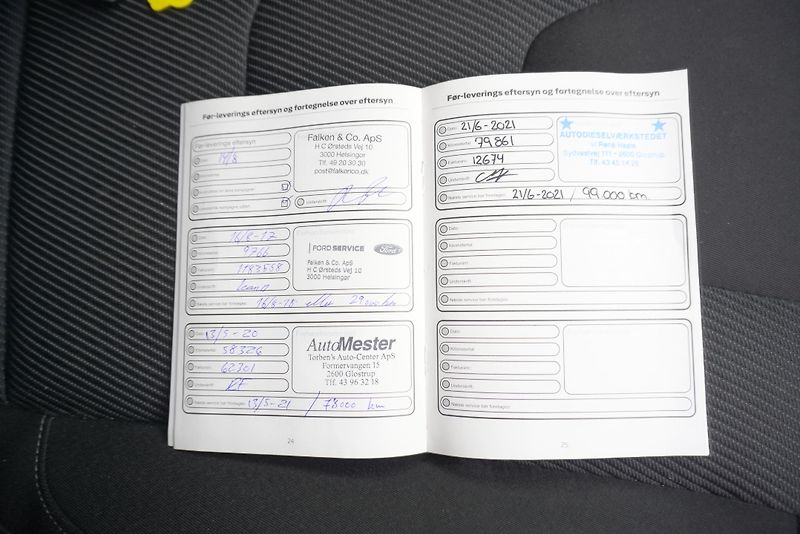 Før-leverings eftersyn og fortegnelse over eftersyn
Før-leverings eftersyn
Dato: 19/8
Falken & Co. ApS
H C Ørsteds Vej 10
3000 Helsingør
Tlf. 49 20 30 30
post@falkenco.dk
Underskrift
Dato: 16/8-17
Kilometertal: 9766
Fakturanr.: 1183558
Underskrift
FORD SERVICE
Ford
Falken & Co. ApS
H C Ørsteds Vej 10
3000 Helsingør
Næste service bør foretages: 16/8-18 eller 29000 km
Dato: 13/5-20
Kilometertal: 58326
Fakturanr.: 62301
Underskrift
AutoMester
Torben's Auto-Center ApS
Formervangen 15
2600 Glostrup
Tlf. 43 96 32 18
Næste service bør foretages: 13/5-21 / 78000 km
24
Før-leverings eftersyn og fortegnelse over eftersyn
Dato: 21/6-2021
Kilometertal: 79861
Fakturanr.: 12674
Underskrift
AUTODIESELVÆRKSTEDET
Sydvestvej 111 - 2600 Glostrup
Tlf. 43 45 14 26
Næste service bør foretages: 21/6-2021 / 99.000 km.
Dato:
Kilometertal:
Fakturanr.:
Underskrift
Næste service bør foretages:
Dato:
Kilometertal:
Fakturanr.:
Underskrift
Næste service bør foretages:
25